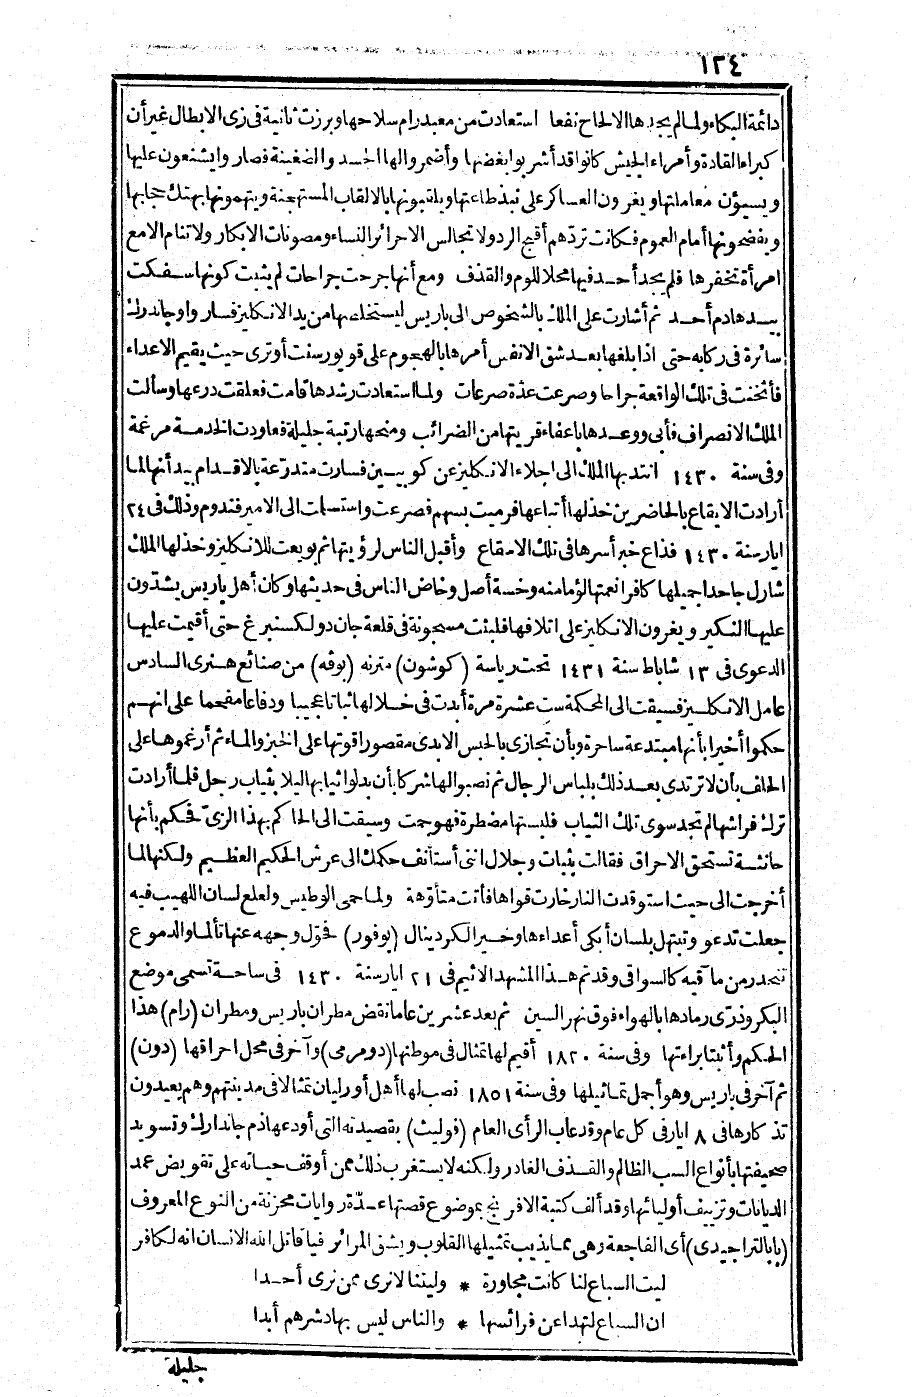 ١٢٤
دائمة البكاء ولما لم يجدها الالحاح نفعا استعادت من معبد رام سلاحها وبرزت ثانية فى زى الابطال غير أن
كبراء القادة وأمراء الجيش كانوا قد أشربوا بغضها وأضمروا لها الحسد والضغينة فصاروا يشنعون عليها
ويسيؤن معاملتها ويغرون العساكر على نبذ طاعتها ويلقبونها بالالقاب المستهجنة ويتهمونها بهتك حجابها
ويفضحونها أمام العموم فكانت تردهم أقبح الرد ولا تجالس الا حرائر النساء ومصونات الابكار ولا تنام الا مع
امرأة تخفرها فلم يجد أحد فيها محلا للوم والقذف ومع أنها جرحت جراحات لم يثبت كونها سفكت
بيدها دم أحد ثم أشارت على الملك بالشخوص الى باريس ليستخلصها من يد الانكليز فسار وجاندرك
سائرة فى ركابه حتى اذا بلغها بعد شق الانفس أمرها بالهجوم على قوبورسنت أوترى حيث يقيم الاعداء
فأثخنت فى تلك الواقعة جراحا وصرعت عدة صرعات ولما استعادت رشدها قامت فعلقت درعها وسألت
الملك الانصراف فأبى ووعدها باعفاء قريتها من الضرائب ومنحها رتبة جليلة فعاودت الخدمة مرغمة
وفى سنة ١٤٣٠ انتدبها الملك الى اجلاء الانكليز عن كوبيين فسارت متدرعة بالاقدام بيد أنها لما
أرادت الايقاع بالحاضرين خذلها أتباعها فرميت بسهم فصرعت واستسلمت الى الامير فندوم وذلك فى ٢٤
ايار سنة ١٤٣٠ فذاع خبر أسرها فى تلك الاصقاع وأقبل الناس لرؤيتها ثم بويعت للانكليز وخذلها الملك
شارل جاحدا جميلها كافرا نعمتها لؤما منه وخسة أصل وخاض الناس فى حديثها وكان أهل باريس يشددون
عليها النكير ويغرون الانكليز على اتلافها فلبثت مسجونة فى قلعة جان دولكسنبرغ حتى أقيمت عليها
الدعوى فى ١٣ شباط سنة ١٤٣١ تحت رياسة (كوشون) مترنه (بوفه) من صنائع هنرى السادس
عامل الانكليز فسيقت الى المحكمة ست عشرة مرة أبدت فى خلالها ثباتا عجيبا ودفاعا مفحما على انهم
حكموا أخيرا بأنها مبتدعة ساحرة وبأن تجازى بالحبس الابدى مقصورا قوتها على الخبز والماء ثم أرغموها على
الحلف بأن لا ترتدى بعد ذلك بلباس الرجال ثم نصبوا لها شركا بأن بدلوا ثيابها ليلا بثياب رجل فلما أرادت
ترك فراشها لم تجد سوى تلك الثياب فلبستها مضطرة فهوجمت وسيقت الى الحاكم بهذا الزى فحكم بأنها
حانثة تستحق الاحراق فقالت بثبات وجلال اننى أستأنف حكمك الى عرش الحكيم العظيم ولكنها لما
أخرجت الى حيث استوقدت النار خارت قواها فأنت متأوهة ولما حمى الوطيس ولعلع لسان اللهيب فيه
جعلت تدعو وتبتهل بلسان أبكى أعداءها وخير الكردينال (بوفور) فحول وجهه عنها تألما والدموع
تنحدر من مآقيه كالسواقى وقد تم هذا المشهد الاثيم فى ٢١ ايار سنة ١٤٣٠ فى ساحة تسمى موضع
البكر وذرى رمادها بالهواء فوق نهر السين ثم بعد عشرين عاما نقض مطران باريس ومطران (رام) هذا
الحكم وأثبتا براءتها وفى سنة ١٨٢٠ أقيم لها تمثال فى موطنها (دومرمى) وآخر فى محل احراقها (دون)
ثم آخر فى باريس وهو أجمل تماثيلها وفى سنة ١٨٥١ نصب لها أهل أورليان تمثالا فى مدينتهم وهم يعيدون
تذكارها فى ٨ ايار فى كل عام وقد عاب الرأى العام (فولت) بقصيدته التى أودعها ذم جاندارك وتسويد
صحيفتها بأنواع السب الظالم والقذف الغادر ولكنه لا يستغرب ذلك ممن أوقف حياته على تقويض عمد
الديانات وتزييف أوليائها وقد ألف كتبة الافرنج بموضوع قصتها عدة روايات محزنة من النوع المعروف
(بالتراجيدى) أى الفاجعة وهى مما يذيب تمثيلها القلوب ويشق المرائر فيا قاتل الله الانسان انه لكافر
ليت السباع لنا كانت مجاورة * وليتنا لا نرى ممن نرى أحدا
ان السباع لتهدا عن فرائسها * والناس ليس بهاد شرهم أبدا
جليلة